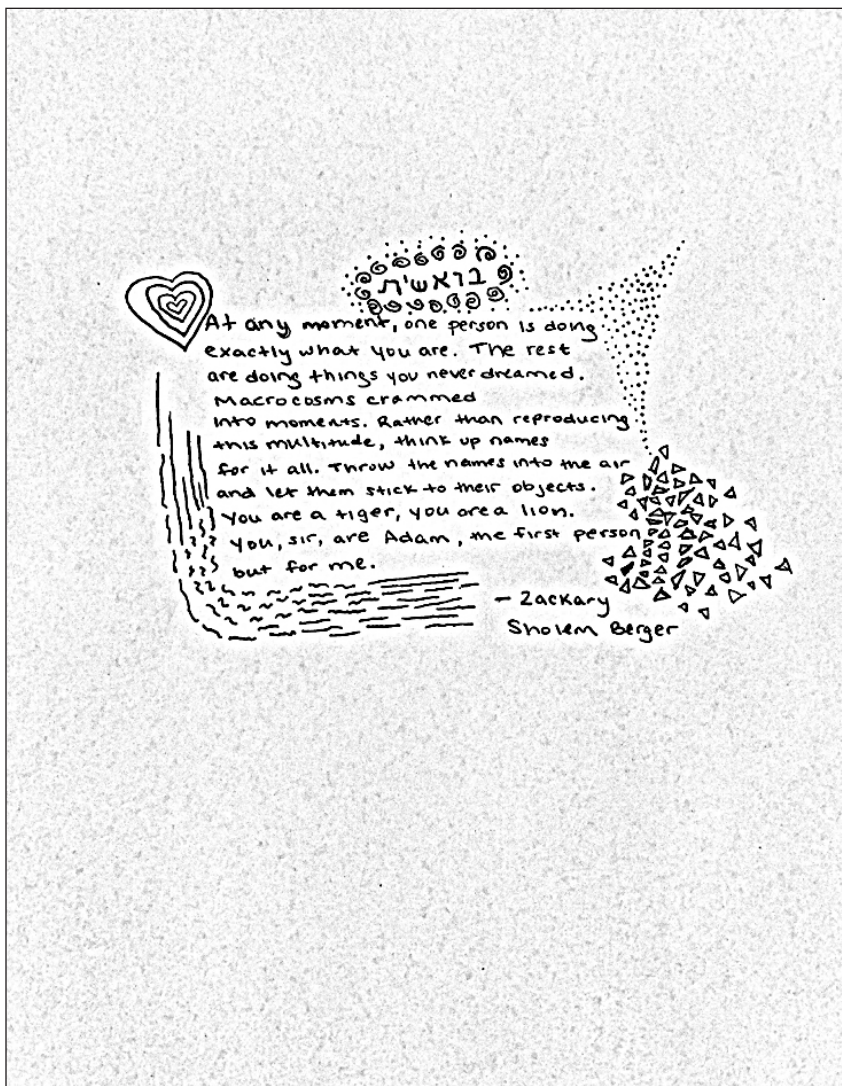 בראשית
At any moment, one person is doing
exactly what you are. The rest
are doing things you never dreamed.
Macrocosms crammed
into moments. Rather than reproducing
this multitude, think up names
for it all. Throw the names into the air
and let them stick to their objects.
You are a tiger, you are a lion.
You, sir, are Adam, the first person
but for me.
- Zackary
Sholem Berger